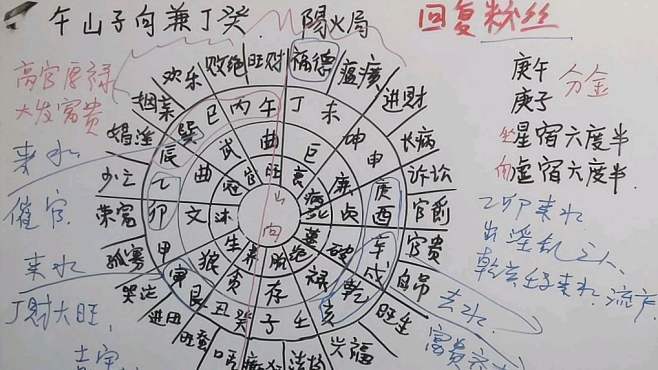 午山子向兼丁癸. 陽火局
回复粉丝
高官厚禄
大发富贵
来水
催官
来水
丁财大旺,
庚午 分金
庚子
坐星宿六度半
向虚宿六度半
乙卯来水
出淫乱之人
乾亥壬子来水.流产
去水.
富贵
败绝 旺财 福德 瘟癀 进财 长病 诉讼 官爵 官贵 自吊 旺庄 兴福 法场 进田 哭泣 孤寡 荣富 少亡 娼淫 姻亲 欢乐
巳 丙 午 丁 未 坤 申 庚 酉 辛 戌 乾 亥 壬 子 癸 丑 艮 寅 甲 卯 乙 辰 巽
武 曲 巨 廉 贞 破 禄 存 贪 狼 文 曲
冠 官 旺 衰 病 死 墓 绝 胎 养 生 沐
山
向